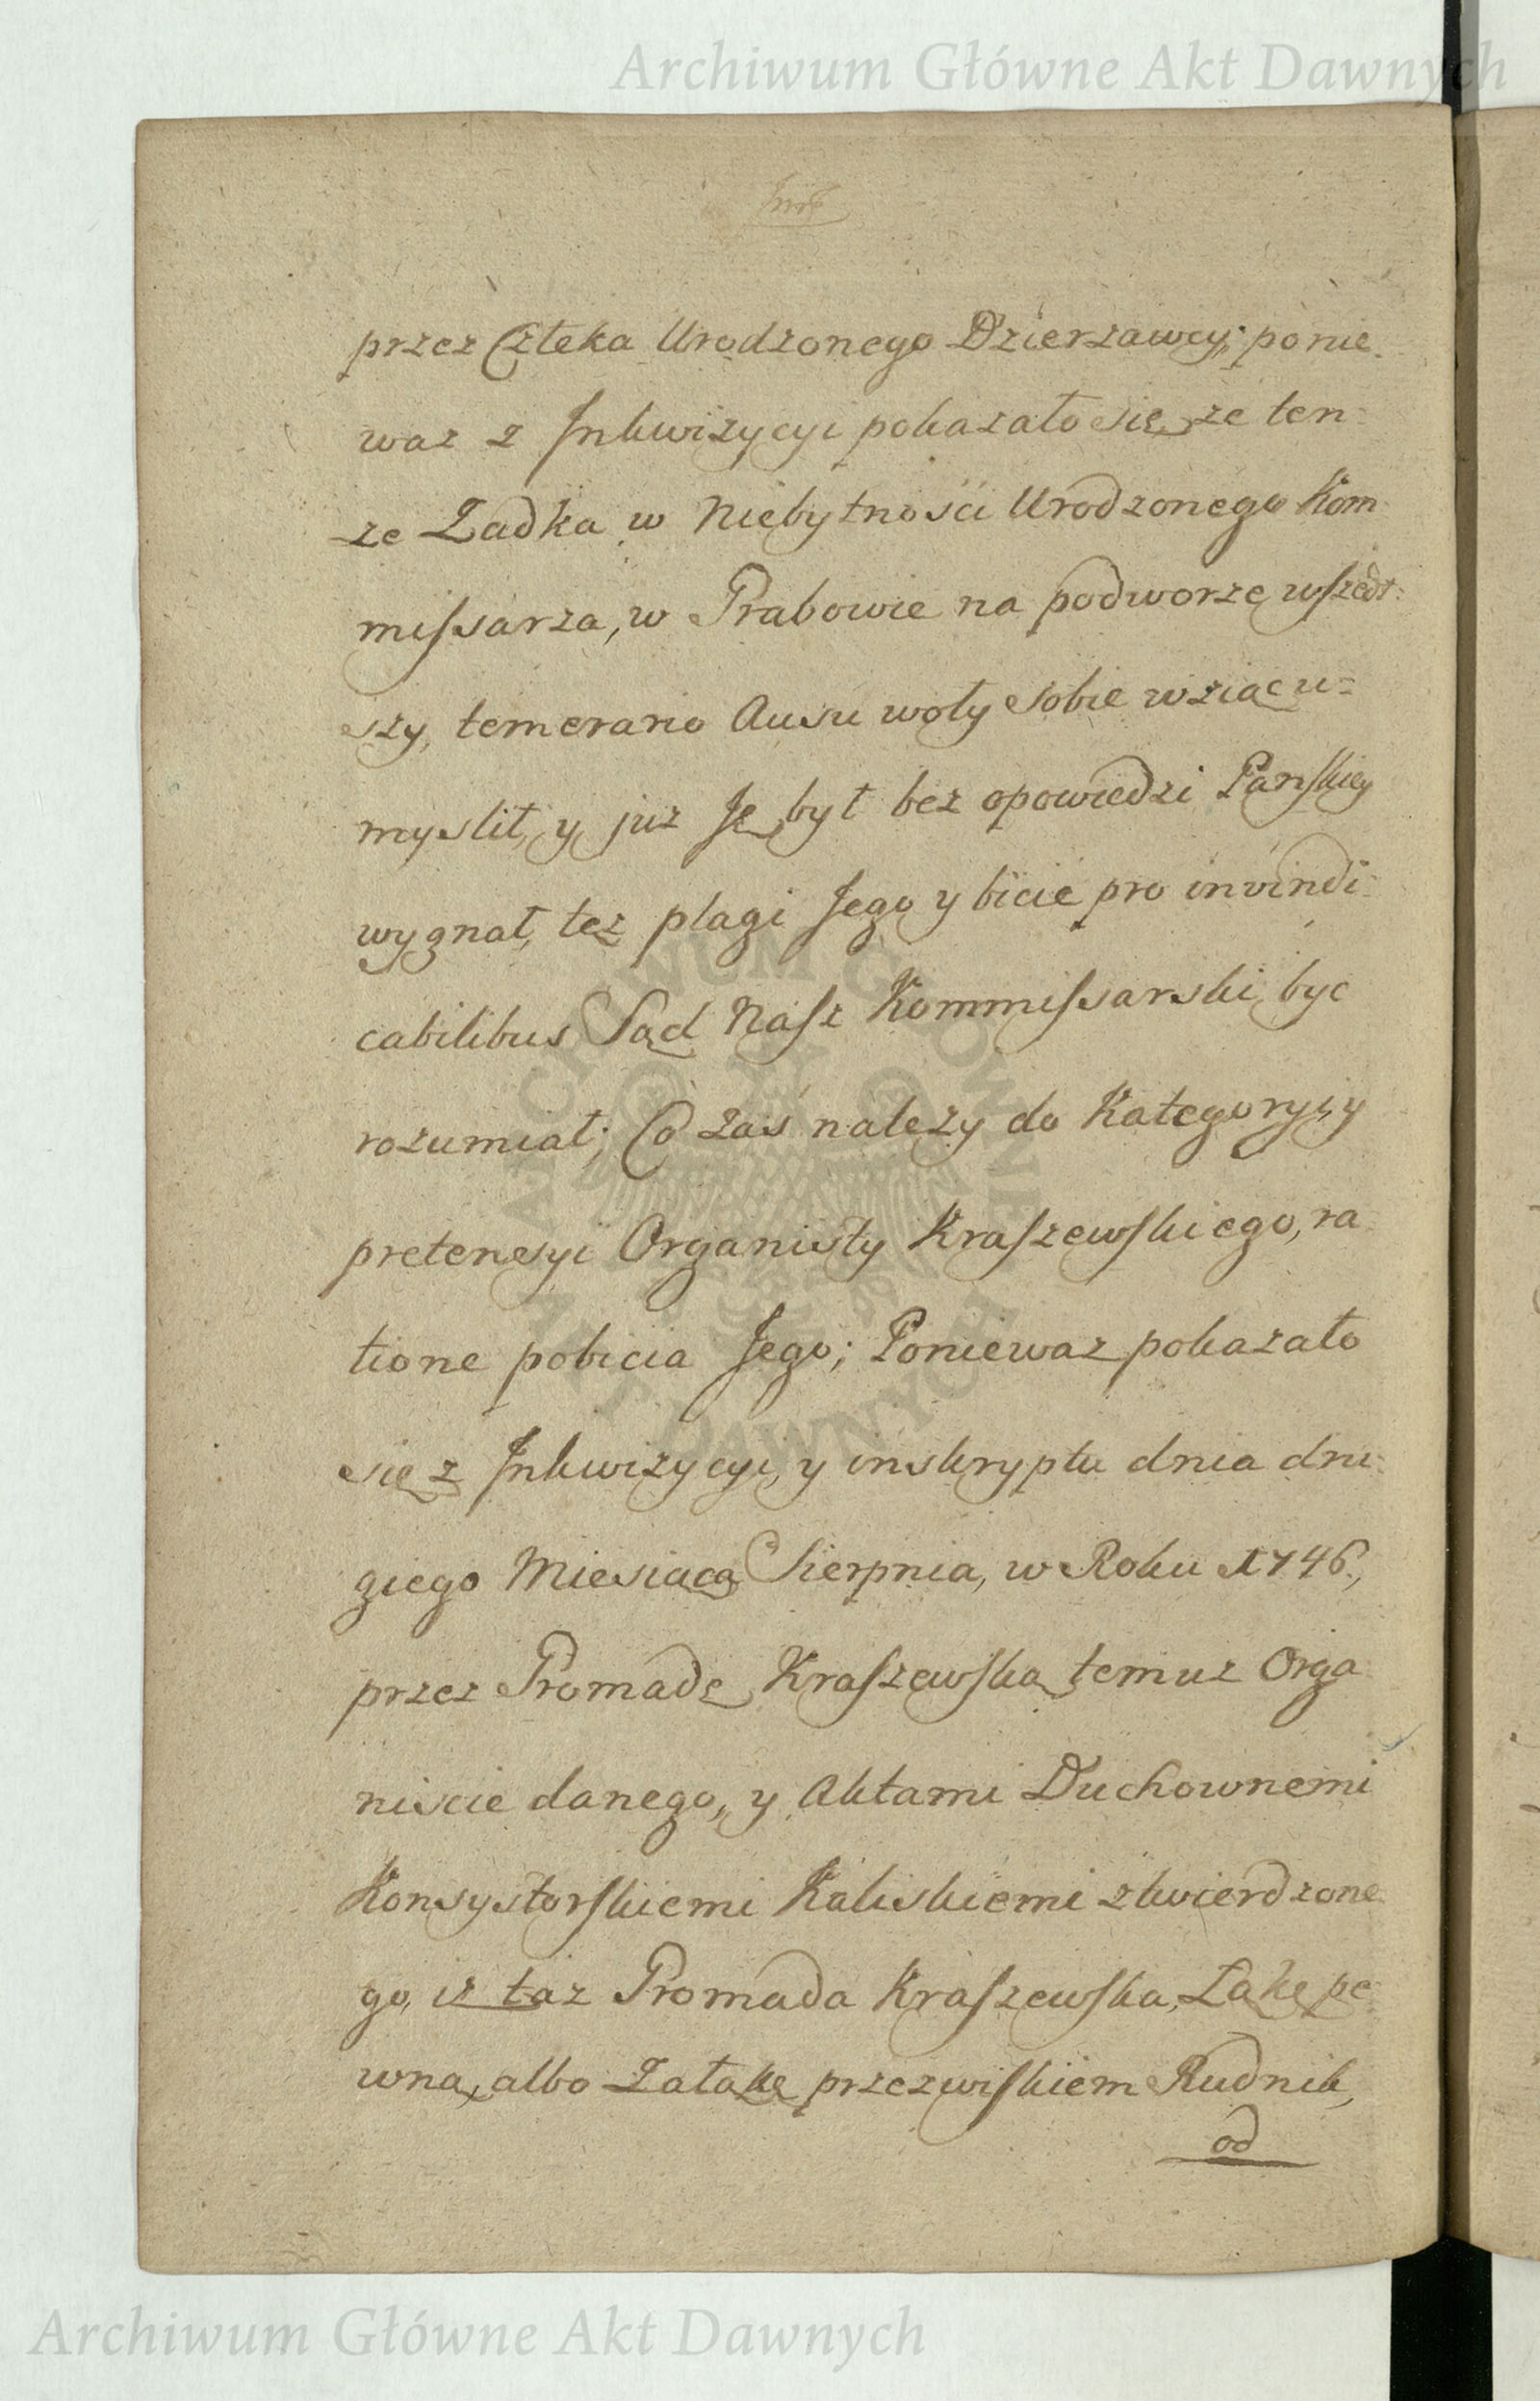 Archiwum Główne Akt Dawnych
przez Człeka Urodzonego Dzierzawcy; ponie-
waz z Inkwizycyi pokazało się, ze ten-
ze Ladka w Niebytnosci Urodzonego Kom-
missarza, w Grabowie na podworze wszedł-
szy, temerario Ausu woły sobie wziąc u-
myslił, y juz Je był bez opowiedzi Panskiey
wygnał, tez plagi Jego y bicie pro invindi-
cabilibus Sąd Nasz Kommissarski byc
rozumiał; Co zaś nalezy do Kategoryi y
pretensyi Organisty Kraszewskiego, ra-
tione pobicia Jego; Poniewaz pokazało
się z Inkwizycyi, y inskryptu dnia dru-
giego Miesiąca Sierpnia, w Roku 1746.,
przez Gromadę Kraszewską temuz Orga-
niscie danego, y Aktami Duchownemi
Konsystorskiemi Kaliskiemi ztwierdzone-
go, iz taz Gromada Kraszewska, Łąkę pe-
wną, albo Zatokę przezwiskiem Rudnik,
od
ARCHIWUM GŁÓWNE AKT DAWNYCH
Archiwum Główne Akt Dawnych